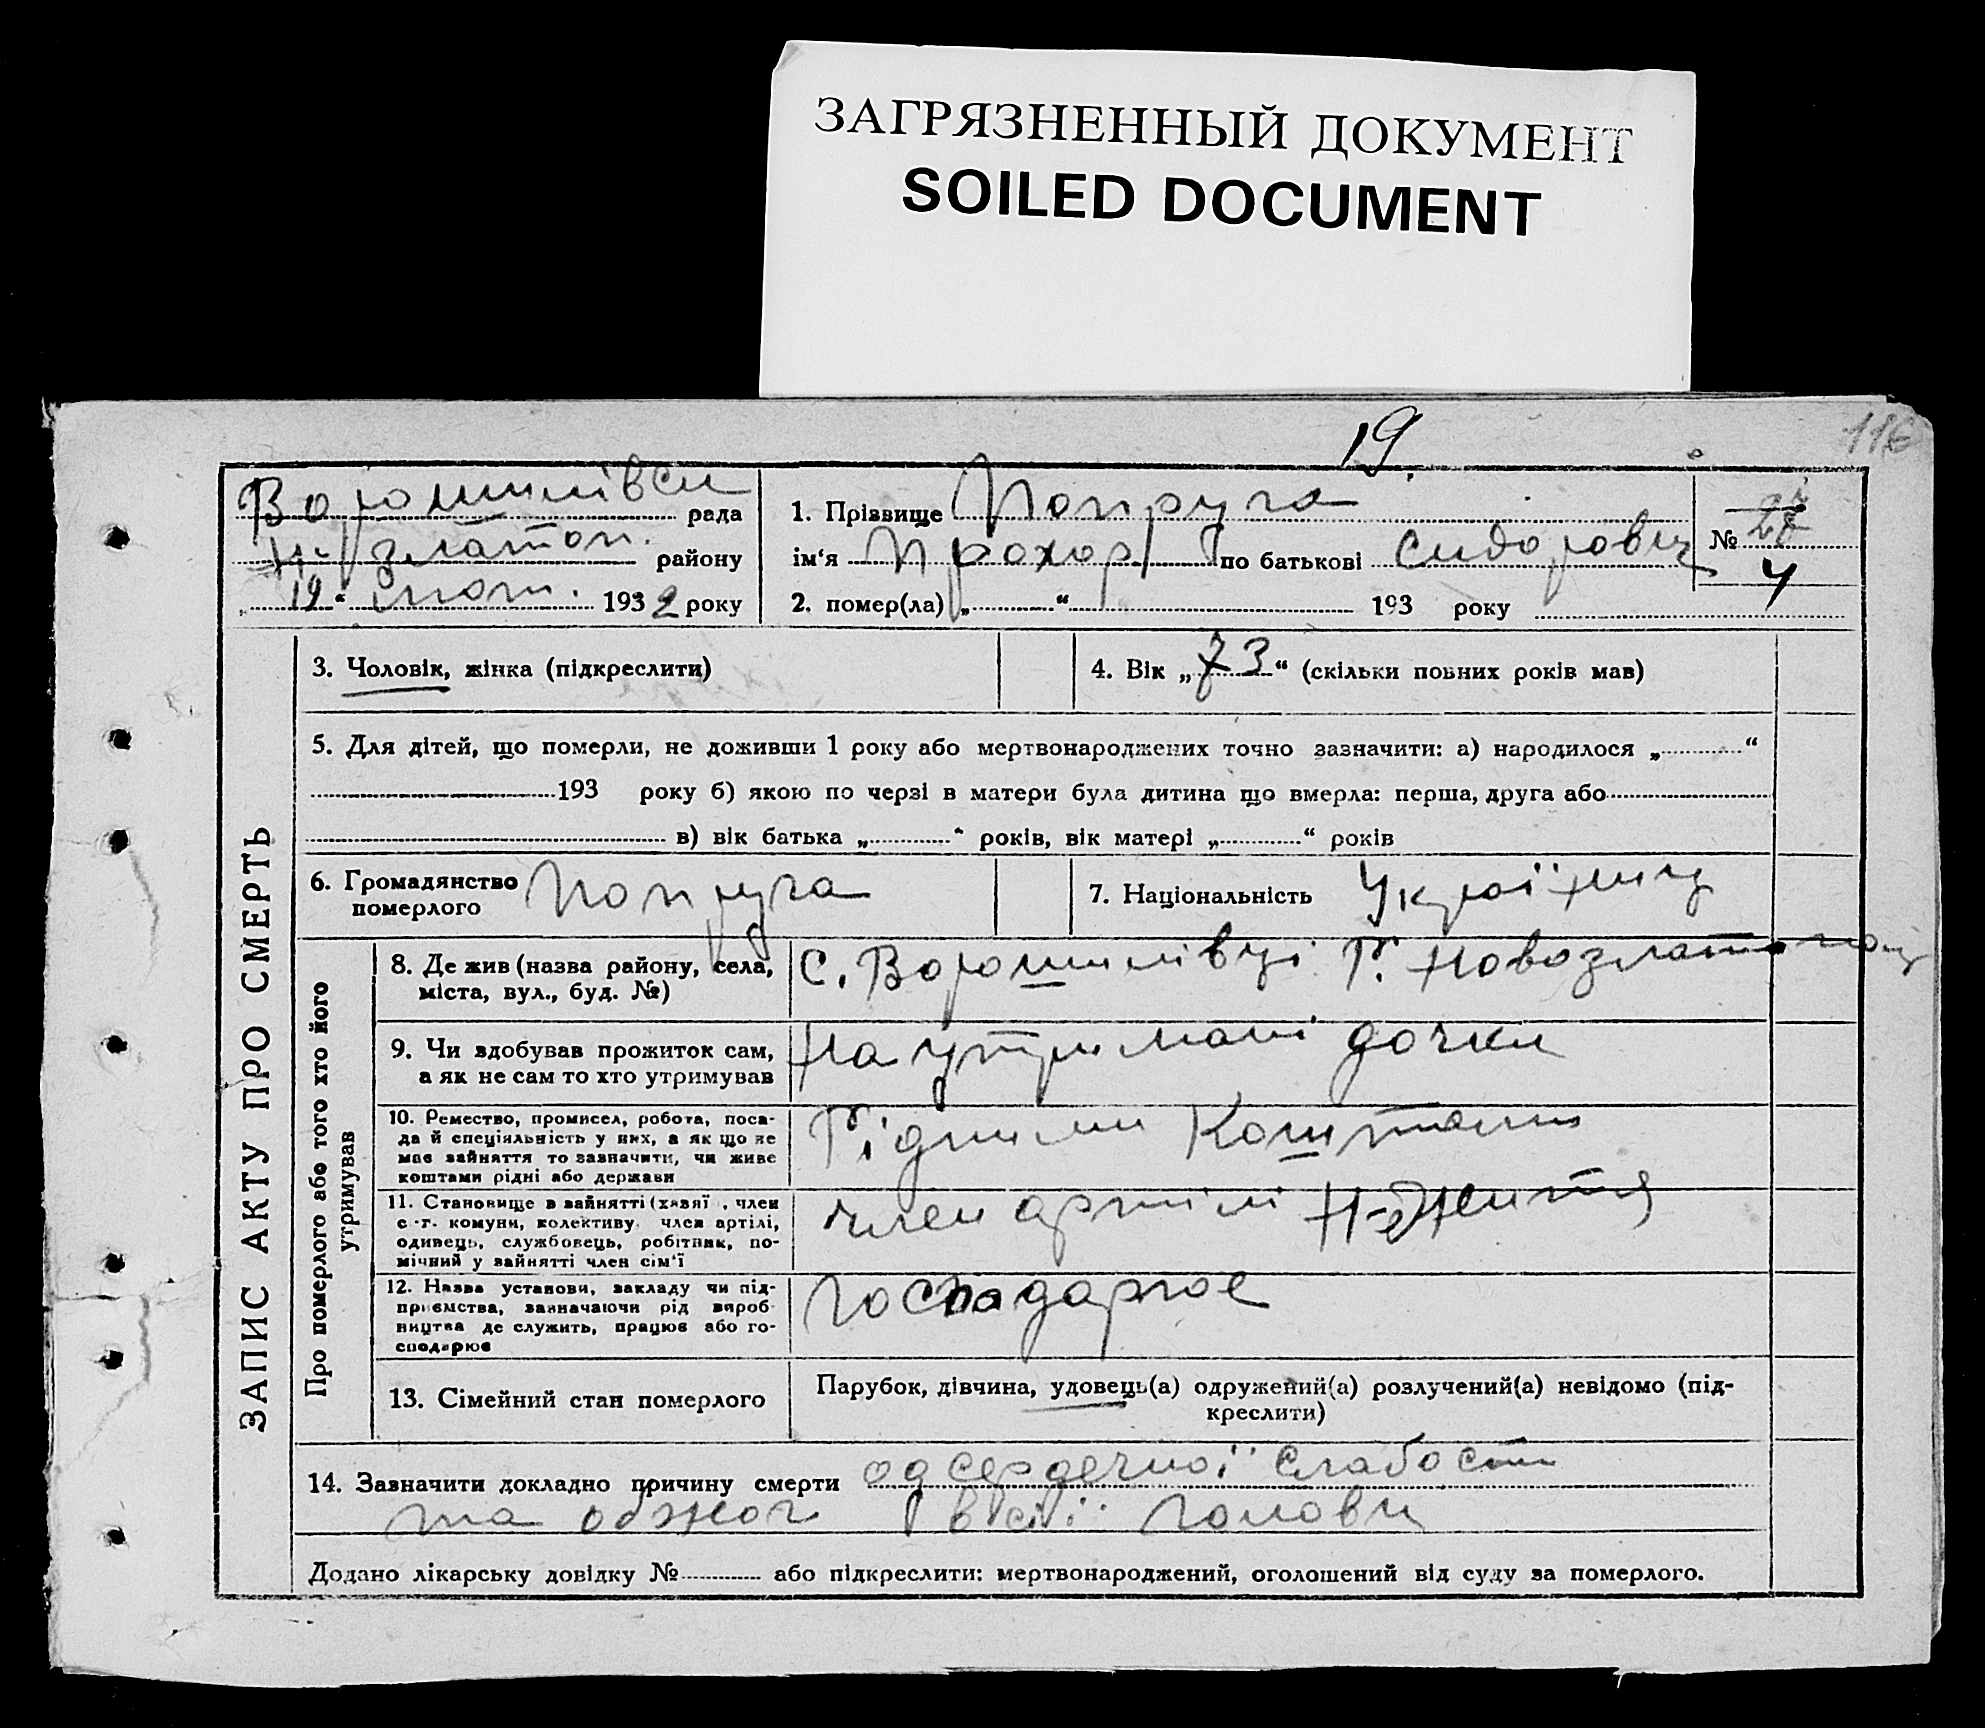 ЗАГРЯЗНЕННЫЙ ДОКУМЕНТ
SOILED DOCUMENT
19.
116
Ворошилівськ рада
Н. Златоп. району
„19“ 1932 року
1. Прізвище Попруга
ім‘я Прохор по батькові Сидорович
№ 28
4
2. помер(ла) „ “ 193 року
ЗАПИС АКТУ ПРО СМЕРТЬ
3. Чоловік, жінка (підкреслити)
4. Вік „73“ (скільки повних років мав)
5. Для дітей, що померли, не доживши 1 року або мертвонароджених точно зазначити: а) народилося „ “
193 року б) якою по черзі в матери була дитина що вмерла: перша, друга або
в) вік батька „ “ років, вік матері „ “ років
6. Громадянство
померлого
Попруга
7. Національність Українц
Про померлого або того хто його
утримував
8. Де жив (назва району, села,
міста, вул., буд. №)
с. Ворошилівці Р. Новозлатопо
9. Чи здобував прожиток сам,
а як не сам то хто утримував
На утримані дочки
10. Ремество, промисел, робота, поса-
да й спеціяльність у них, а як що не
має зайняття то зазначити, чи живе
коштами рідні або держави
Рідними Коштами
11. Становище в зайнятті (хазяї , член
с.-г. комуни, колективу, член артілі,
одивець, службовець, робітник, по-
мічний у зайнятті член сім‘ї
член артілі Н-Життя
12. Назва установи, закладу чи під-
приємства, зазначаючи рід вироб-
ництва де служить, працює або го-
сподарює
господарює
13. Сімейний стан померлого
Парубок, дівчина, удовець(а) одружений(а) розлучений(а) невідомо (під-
креслити)
14. Зазначити докладно причину смерти од сердечної слабости
та обжог всій голови
Додано лікарську довідку № або підкреслити: мертвонароджений, оголошений від суду за померлого.